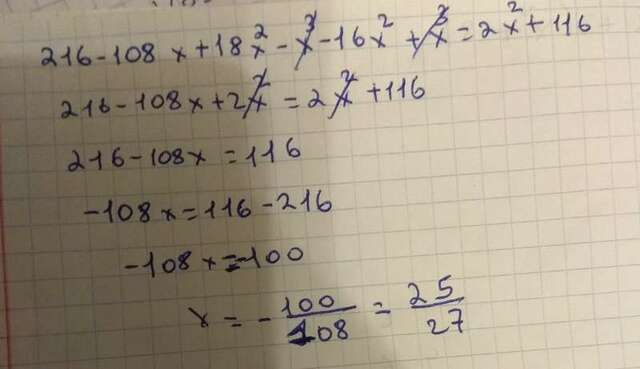 216-108x+18x²-x³-16x²+x³=2x²+116
216-108x+2x²=2x²+116
216-108x=116
-108x=116-216
-108x=-100
x=-100/108=25/27